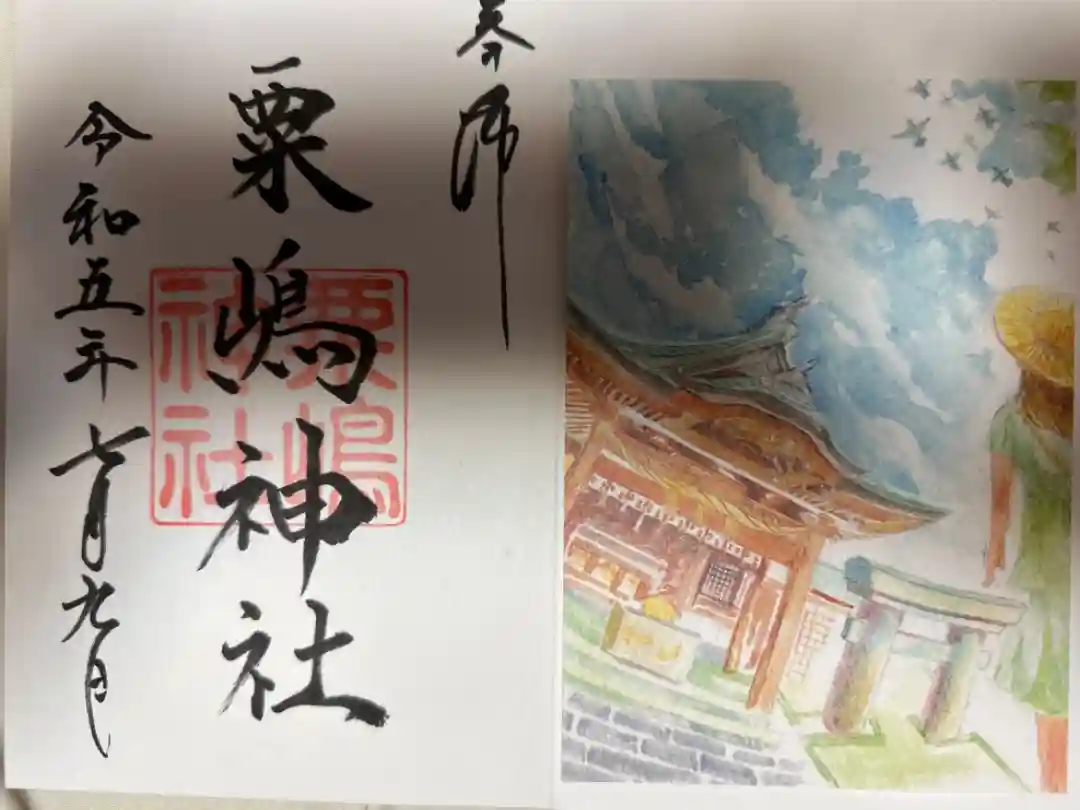 奉拝
粟嶋神社
令和五年七月九日
粟嶋
神社